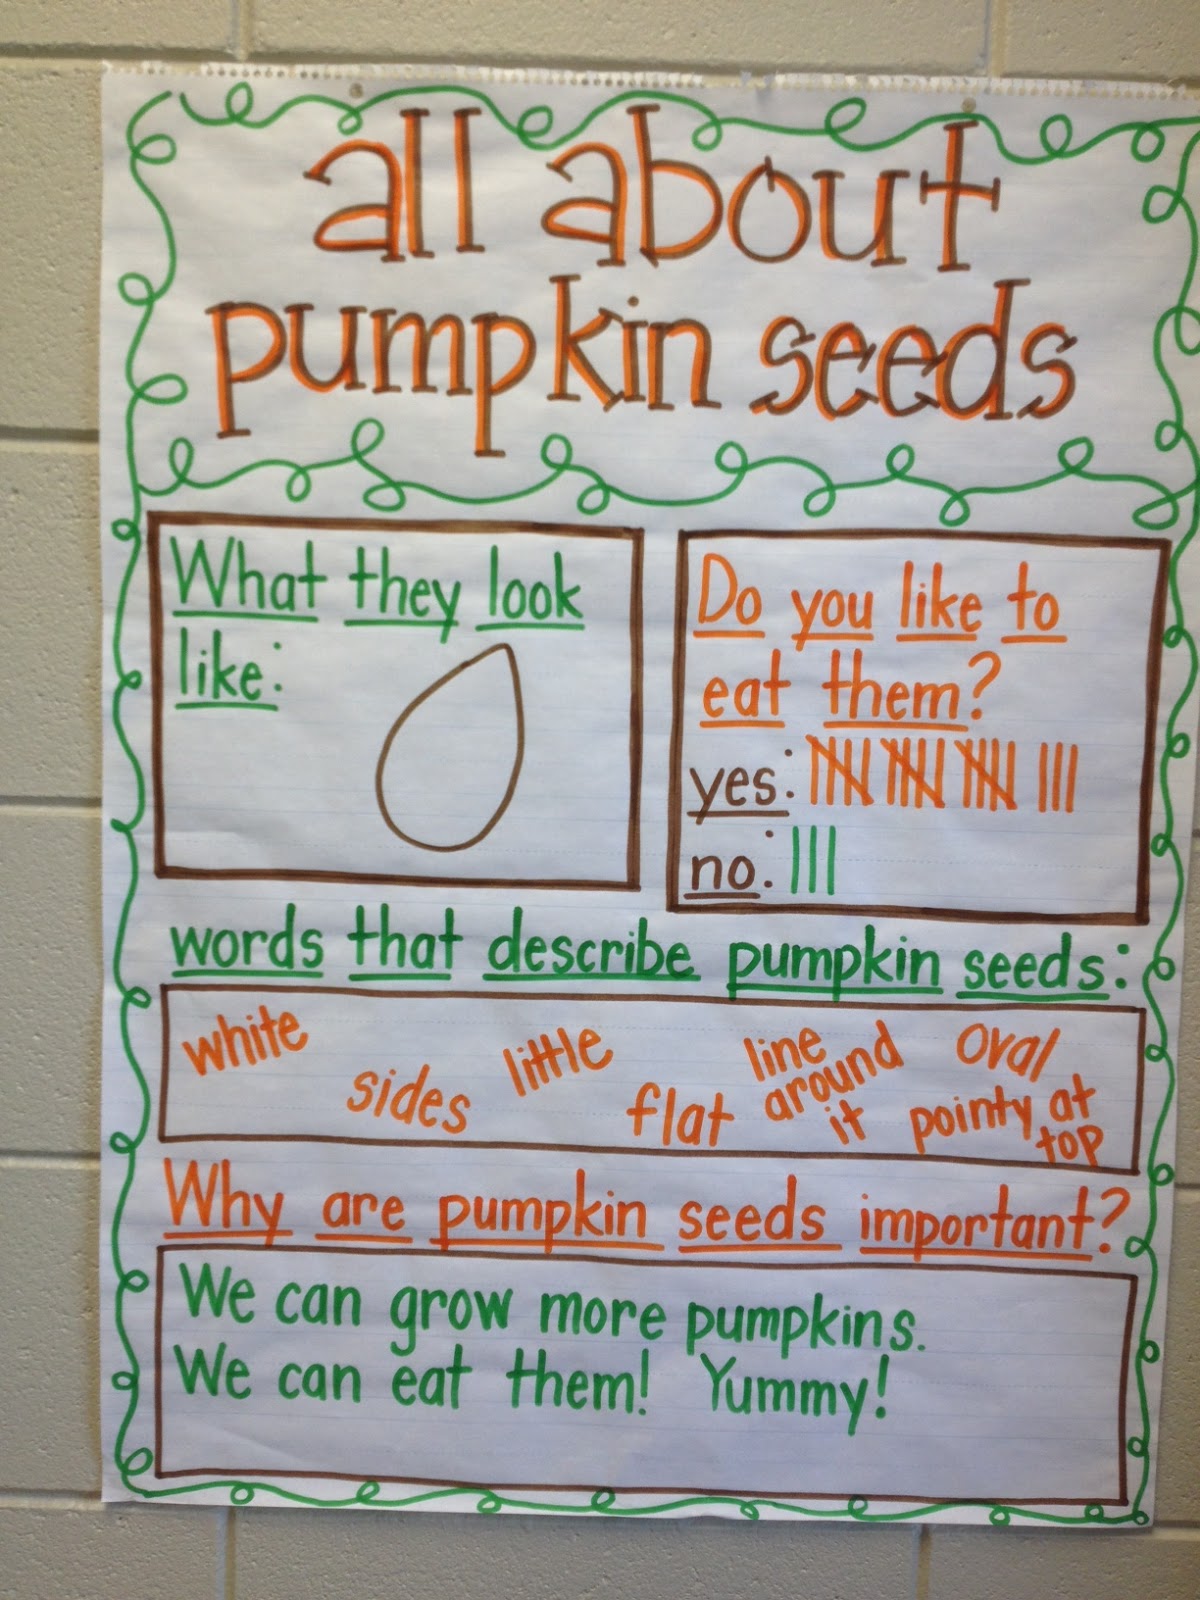 all about
pumpkin seeds
What they look
like:
Do you like to
eat them?
yes:
no:
words that describe pumpkin seeds:
white
sides
little
flat
line
around
it
oval
pointy at
top
Why are pumpkin seeds important?
We can grow more pumpkins.
We can eat them! Yummy!